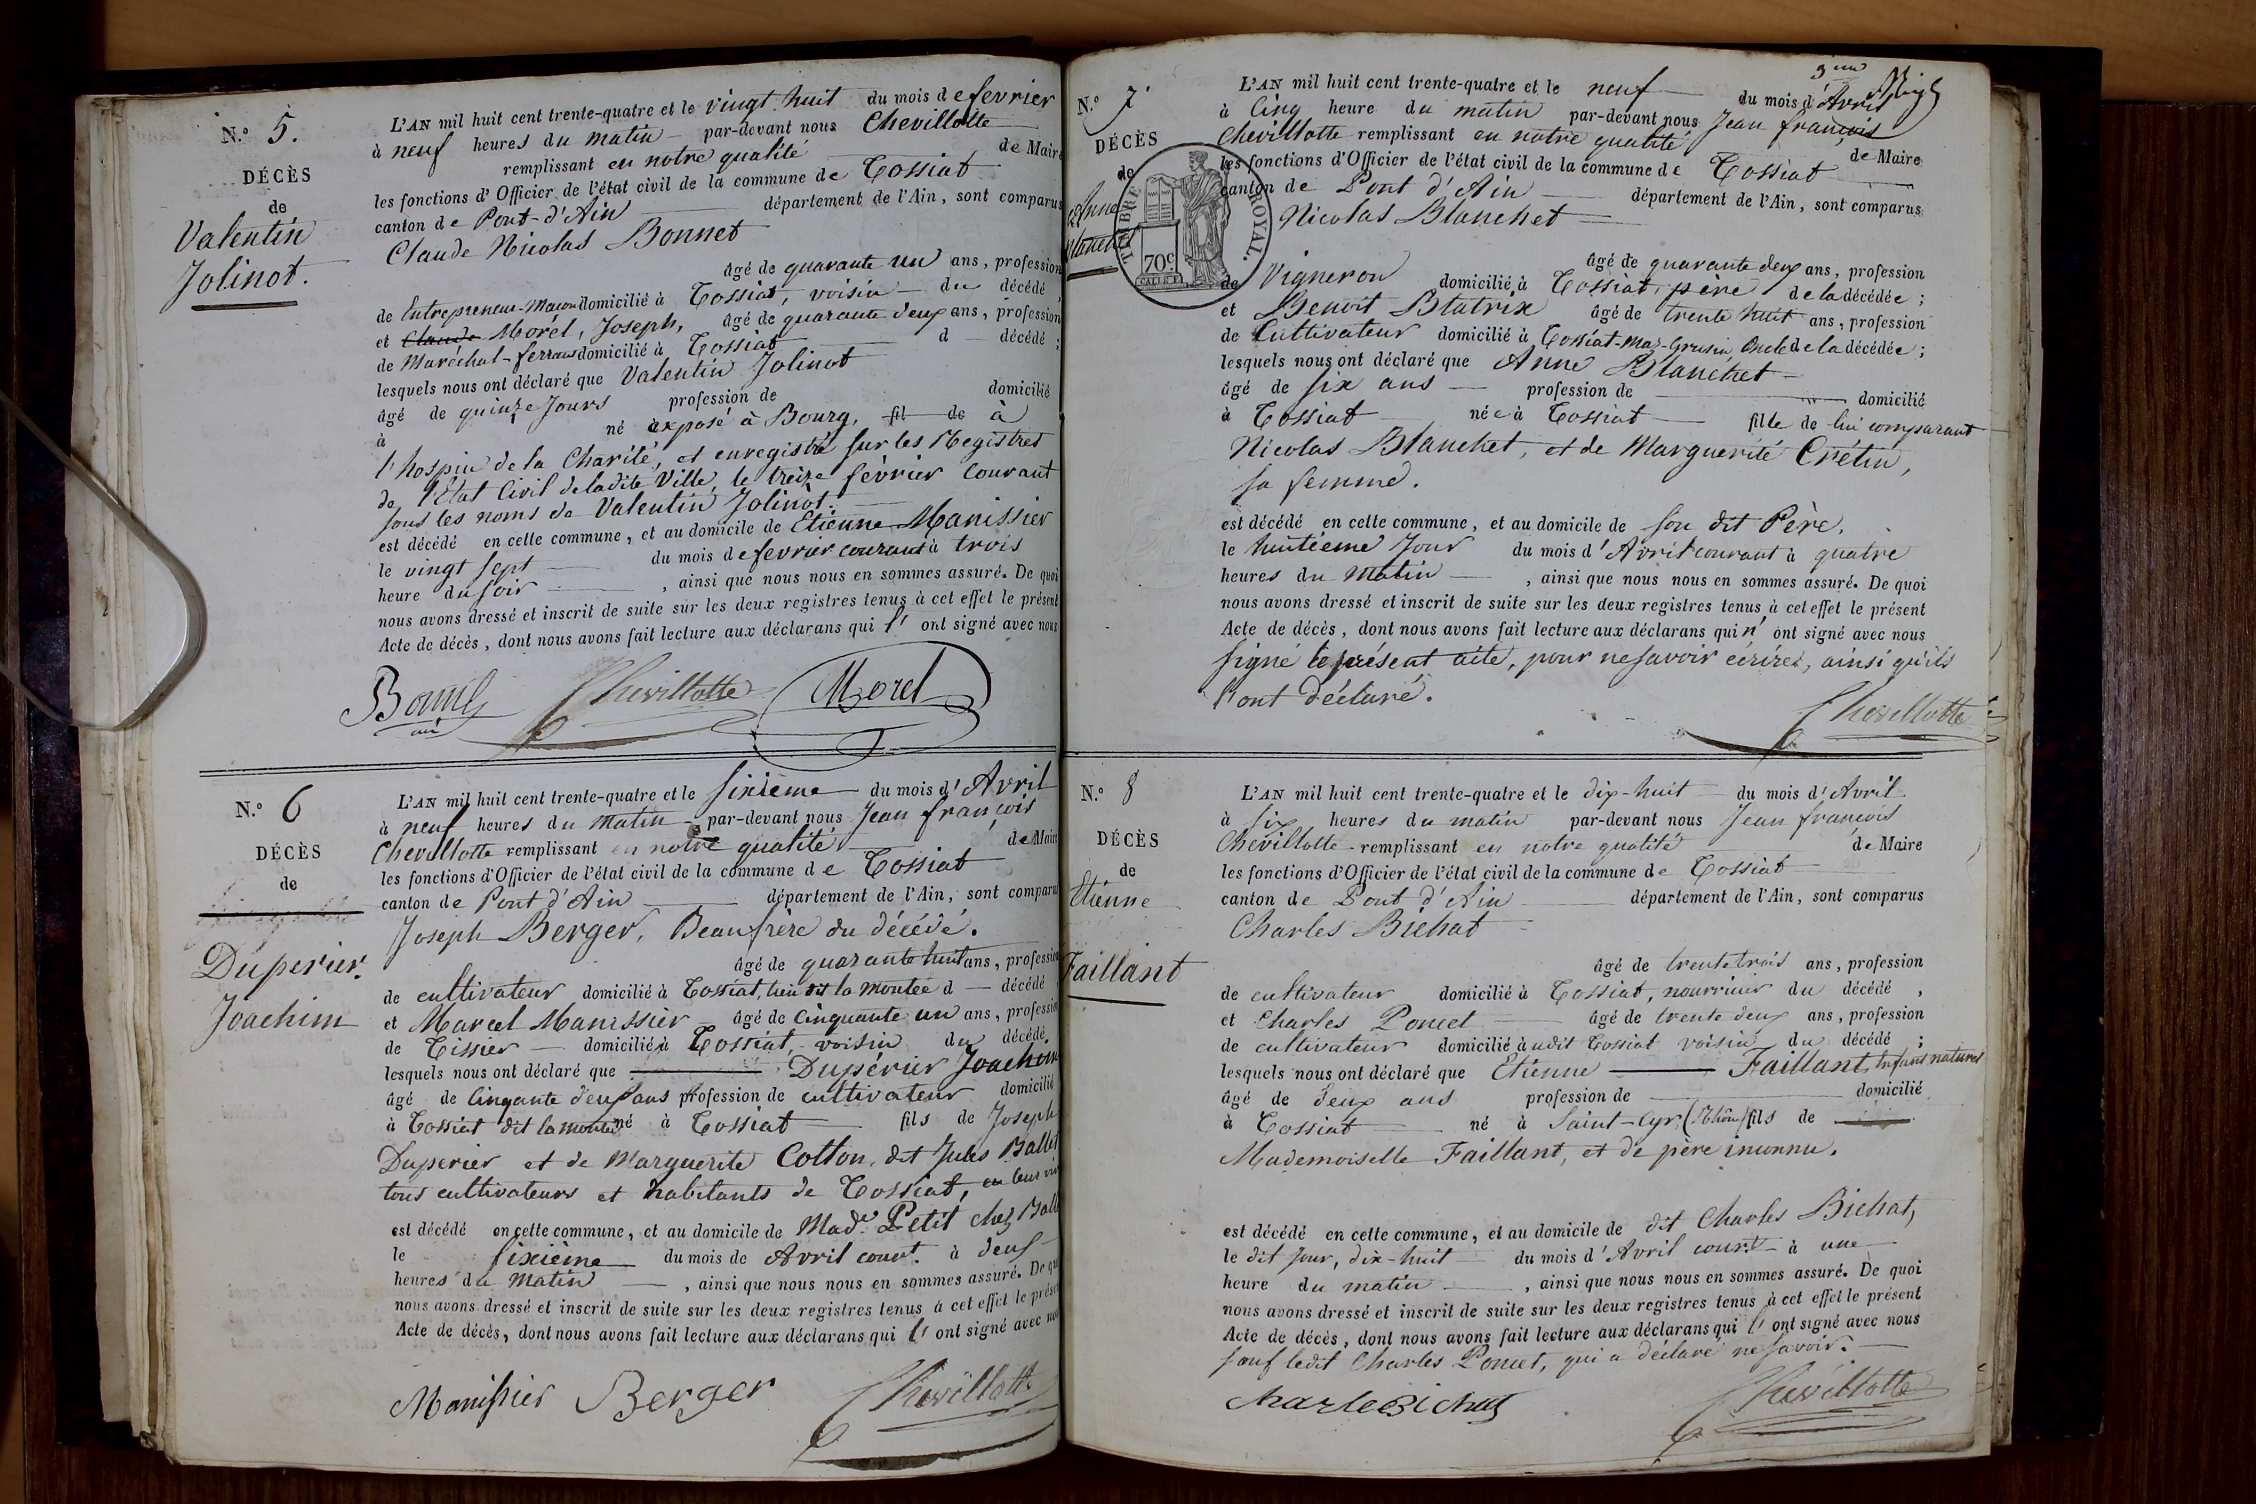 N.º 5.
DÉCÈS
de
Valentin
Jolinot.
L'AN mil huit cent trente-quatre et le vingt huit du mois de fevrier
à neuf heures du matin par-devant nous Chevillotte
remplissant en notre qualité de Maire
les fonctions d'Officier de l'état civil de la commune de Tossiat
canton de Pont-d'Ain département de l'Ain, sont comparus
Claude Nicolas Bonnet
âgé de quarante un ans, profession
de Entrepreneur-Maçon domicilié à Tossiat, voisin du décédé
et Claude Morél, Joseph, âgé de quarante deux ans, profession
de Maréchal-ferrant domicilié à Tossiat d décédé ;
lesquels nous ont déclaré que Valentin Jolinot
âgé de quinze Jours profession de domicilié
à né exposé à Bourg, fil de à
l'hospice de la Charité, et enregistré sur les Registres
de l'Etat Civil de ladite Ville, le treize février Courant
sous les noms de Valentin Jolinot.
est décédé en cette commune, et au domicile de Etienne Manissier
le vingt sept du mois de fevrier courant à trois
heure du soir , ainsi que nous nous en sommes assuré. De quoi
nous avons dressé et inscrit de suite sur les deux registres tenus à cet effet le présent
Acte de décès, dont nous avons fait lecture aux déclarans qui l' ont signé avec nous
Chevillotte Morel
N.º 6
DÉCÈS
de
Duperier.
Joachim
L'AN mil huit cent trente-quatre et le sixième du mois d'Avril
à neuf heures du matin par-devant nous Jean françois
Chevillotte remplissant en notre qualité de Maire
les fonctions d'Officier de l'état civil de la commune de Tossiat
canton de Pont d'Ain département de l'Ain, sont comparus
Joseph Berger, Beaufrère du décédé.
âgé de quarante huit ans, profession
de cultivateur domicilié à Tossiat, lieu dit la montée d décédé
et Marcel Manissier âgé de Cinquante un ans, profession
de Tissier domicilié à Tossiat, voisin du décédé.
lesquels nous ont déclaré que Dupérier Joachim
âgé de Cinqante deux ans profession de cultivateur domicilié
à Tossiat dit la montée né à Tossiat fils de Joseph
Duperier et de Marguerite Cotton, dit Jules Ballet
tous cultivateurs et habitants de Tossiat, en leur
est décédé en cette commune, et au domicile de Mad.e Petit chez
le sixième du mois de Avril cour.t à deux
heures du matin , ainsi que nous nous en sommes assuré. De quoi
nous avons dressé et inscrit de suite sur les deux registres tenus à cet effet le présent
Acte de décès, dont nous avons fait lecture aux déclarans qui l' ont signé avec nous
Manissier Berger Chevillotte
N.º 7
DÉCÈS
de
Anne
Blanchet
TIMBRE ROYAL.
70c
L'AN mil huit cent trente-quatre et le neuf du mois d'Avril
à Cinq heure du matin par-devant nous Jean françois
Chevillotte remplissant en notre qualité de Maire
les fonctions d'Officier de l'état civil de la commune de Tossiat
canton de Pont d'Ain département de l'Ain, sont comparus
Nicolas Blanchet
âgé de quarante deux ans, profession
de Vigneron domicilié à Tossiat, père de la décédée ;
et Benoit Blatrix âgé de trente huit ans, profession
de Cultivateur domicilié à Tossiat-Mas-Grusin, Oncle de la décédée ;
lesquels nous ont déclaré que Anne Blanchet
âgé de six ans profession de domicilié
à Tossiat née à Tossiat fille de lui comparant
Nicolas Blanchet, et de Marguerite Crétin,
sa femme.
est décédé en cette commune, et au domicile de son dit Père.
le huitieme Jour du mois d'Avril courant à quatre
heures du matin , ainsi que nous nous en sommes assuré. De quoi
nous avons dressé et inscrit de suite sur les deux registres tenus à cet effet le présent
Acte de décès, dont nous avons fait lecture aux déclarans qui n' ont signé avec nous
signé le présent acte, pour ne savoir écrire, ainsi qu'ils
l'ont déclaré.
Chevillotte
N.º 8
DÉCÈS
de
Etienne
Faillant
L'AN mil huit cent trente-quatre et le dix-huit du mois d'Avril
à six heures du matin par-devant nous Jean françois
Chevillotte remplissant en notre qualité de Maire
les fonctions d'Officier de l'état civil de la commune de Tossiat
canton de Pont d'Ain département de l'Ain, sont comparus
Charles Bichat
âgé de trente trois ans, profession
de cultivateur domicilié à Tossiat, nourricier du décédé ,
et Charles Poncet âgé de trente deux ans, profession
de cultivateur domicilié à udit Tossiat voisin du décédé ;
lesquels nous ont déclaré que Etienne Faillant, Enfant naturel
âgé de deux ans profession de domicilié
à Tossiat né à Saint-Cyr, (Rhône) fils de
Mademoiselle Faillant, et de père inconnu.
est décédé en cette commune, et au domicile de dit Charles Bichat,
le dit jour, dix-huit du mois d'Avril cour.t à une
heure du matin , ainsi que nous nous en sommes assuré. De quoi
nous avons dressé et inscrit de suite sur les deux registres tenus à cet effet le présent
Acte de décès, dont nous avons fait lecture aux déclarans qui l' ont signé avec nous
sauf ledit Charles Poncet, qui a déclaré ne savoir.
Charle Bichat Chevillotte